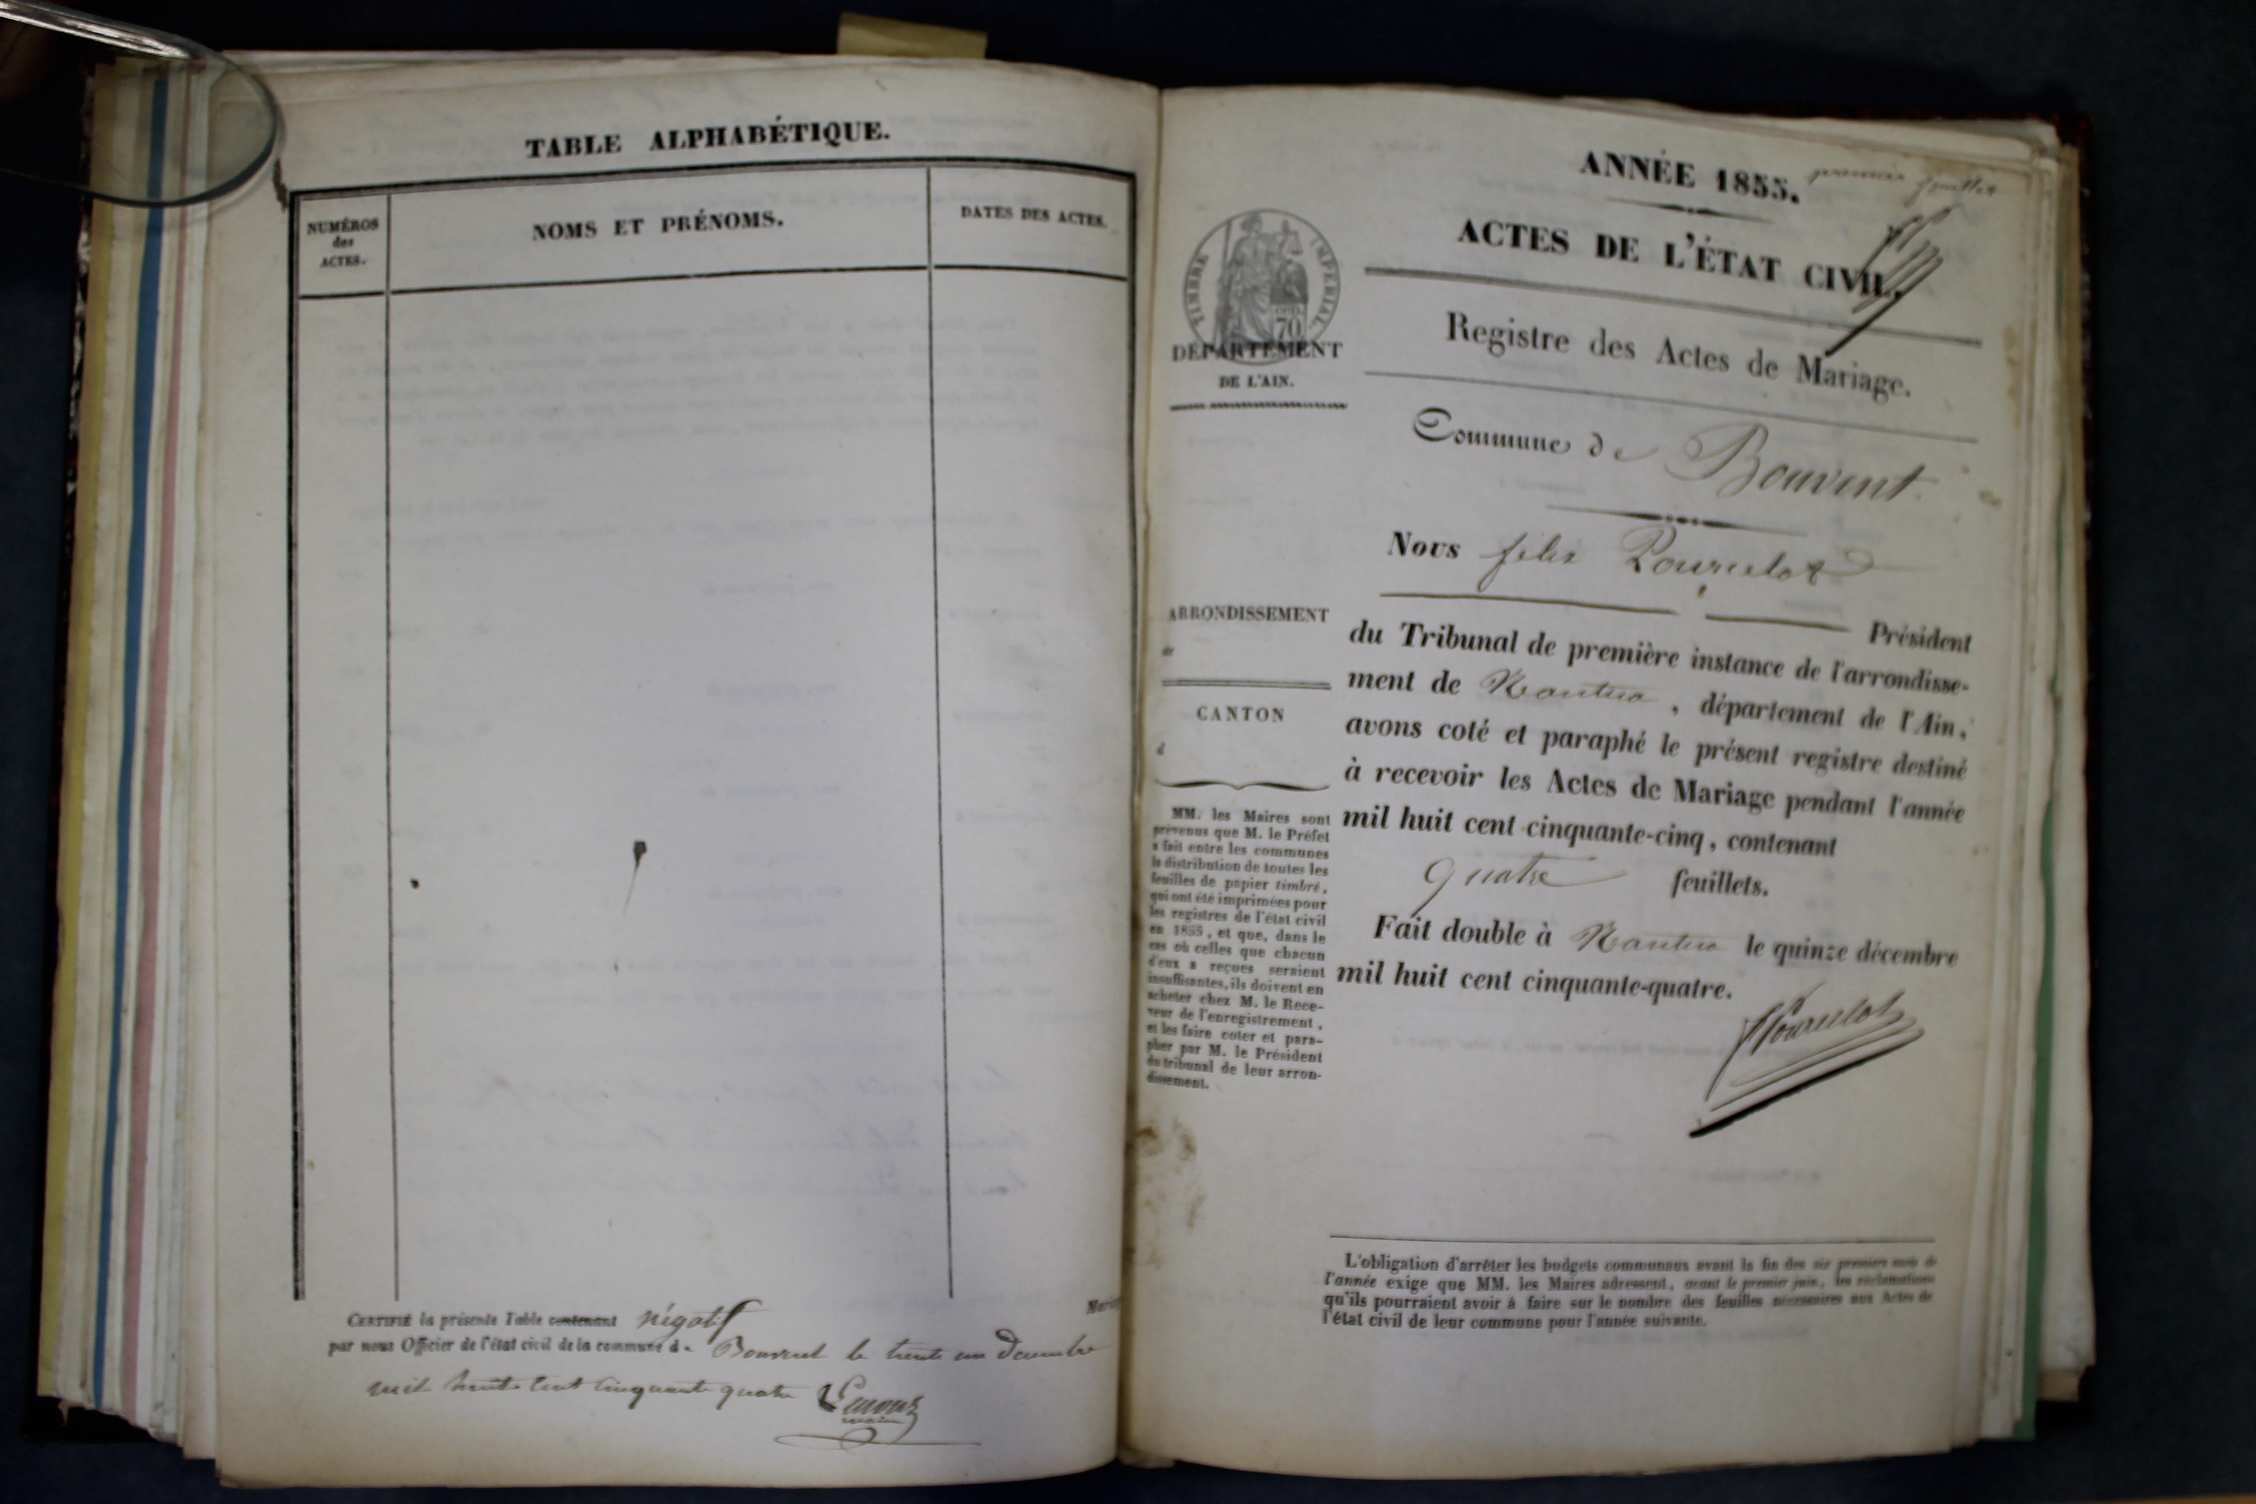 TABLE ALPHABÉTIQUE.
NUMÉROS
des
ACTES.
NOMS ET PRÉNOMS.
DATES DES ACTES.
CERTIFIÉ la présente Table contenant négatif
par nous Officier de l'état civil de la commune de Bouvent le trente un décembre
mil huit cent cinquante quatre
maire
ANNÉE 1855. premier feuillet
ACTES DE L'ÉTAT CIVIL.
TIMBRE IMPÉRIAL
70
DÉPARTEMENT
DE L'AIN.
Registre des Actes de Mariage.
Commune de Bouvent
Nous félix
Président
du Tribunal de première instance de l'arrondisse-
ment de Nantua, département de l'Ain,
avons coté et paraphé le présent registre destiné
à recevoir les Actes de Mariage pendant l'année
mil huit cent cinquante-cinq, contenant
quatre feuillets.
Fait double à Nantua le quinze décembre
mil huit cent cinquante-quatre.
ARRONDISSEMENT
de
CANTON
d
MM. les Maires sont
prévenus que M. le Préfet
a fait entre les communes
la distribution de toutes les
feuilles de papier timbré,
qui ont été imprimées pour
les registres de l'état civil
en 1855, et que, dans le
cas où celles que chacun
d'eux a reçues seraient
insuffisantes, ils doivent en
acheter chez M. le Rece-
veur de l'enregistrement,
et les faire coter et para-
pher par M. le Président
du tribunal de leur arron-
dissement.
L'obligation d'arrêter les budgets communaux avant la fin des six premiers mois de
l'année exige que MM. les Maires adressent, avant le premier juin, les réclamations
qu'ils pourraient avoir à faire sur le nombre des feuilles nécessaires aux Actes de
l'état civil de leur commune pour l'année suivante.